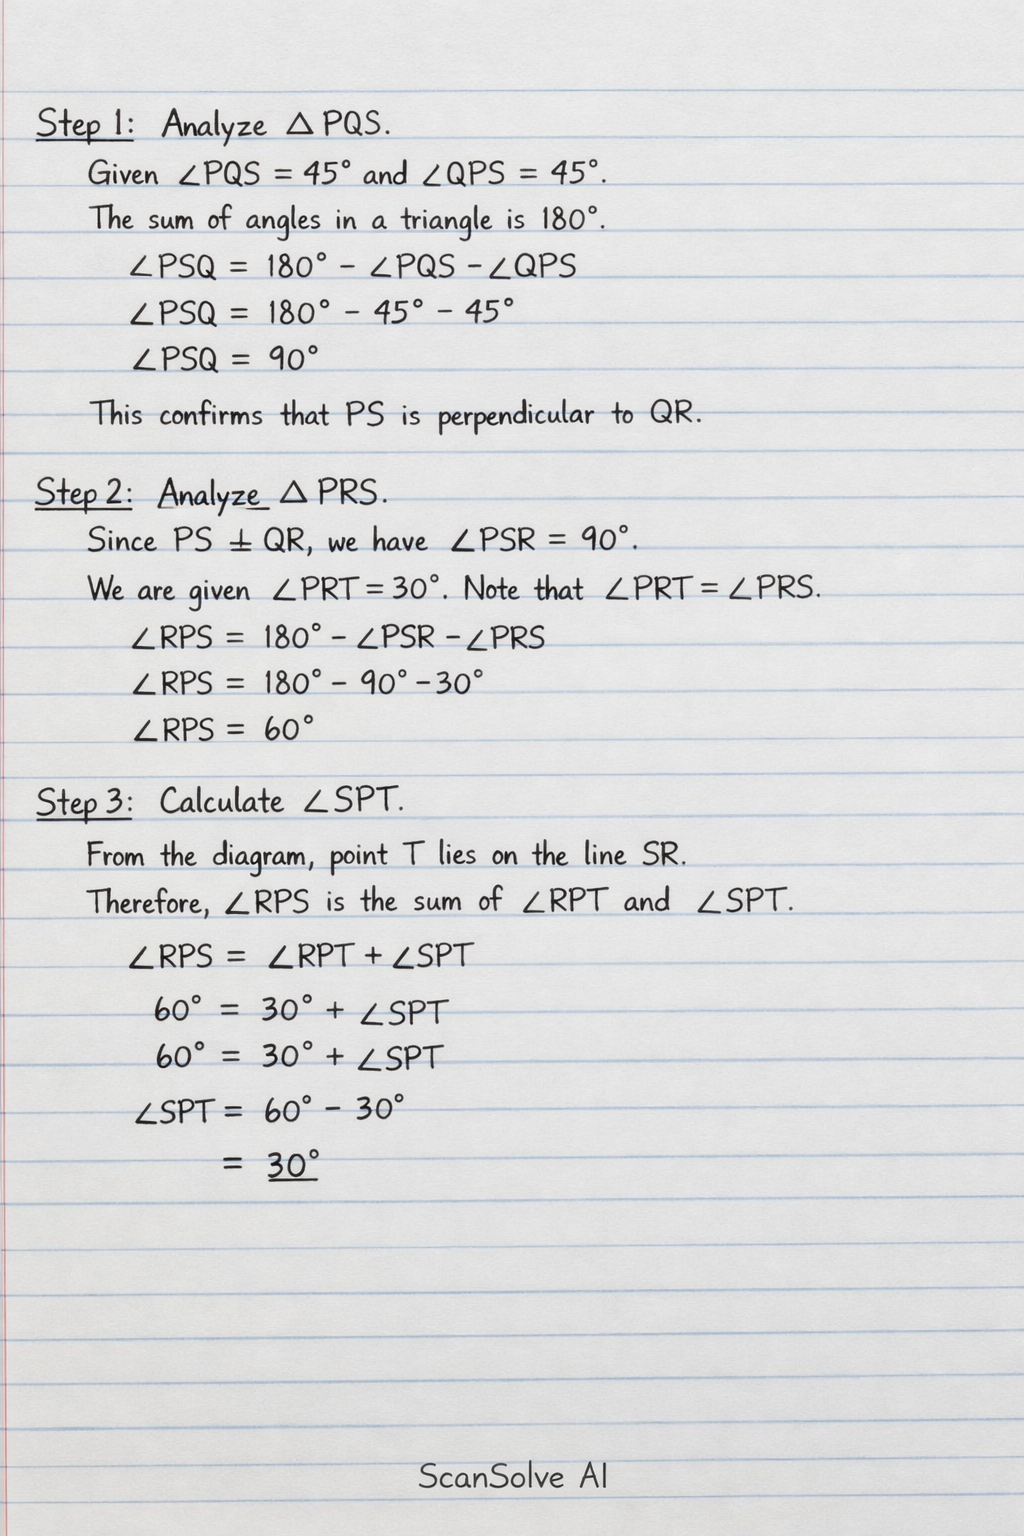 Step 1: Analyze △ PQS.
Given ∠PQS = 45° and ∠QPS = 45°.
The sum of angles in a triangle is 180°.
∠PSQ = 180° - ∠PQS - ∠QPS
∠PSQ = 180° - 45° - 45°
∠PSQ = 90°
This confirms that PS is perpendicular to QR.
Step 2: Analyze △ PRS.
Since PS ± QR, we have ∠PSR = 90°.
We are given ∠PRT = 30°. Note that ∠PRT = ∠PRS.
∠RPS = 180° - ∠PSR - ∠PRS
∠RPS = 180° - 90° - 30°
∠RPS = 60°
Step 3: Calculate ∠SPT.
From the diagram, point T lies on the line SR.
Therefore, ∠RPS is the sum of ∠RPT and ∠SPT.
∠RPS = ∠RPT + ∠SPT
60° = 30° + ∠SPT
60° = 30° + ∠SPT
∠SPT = 60° - 30°
= 30°
ScanSolve AI